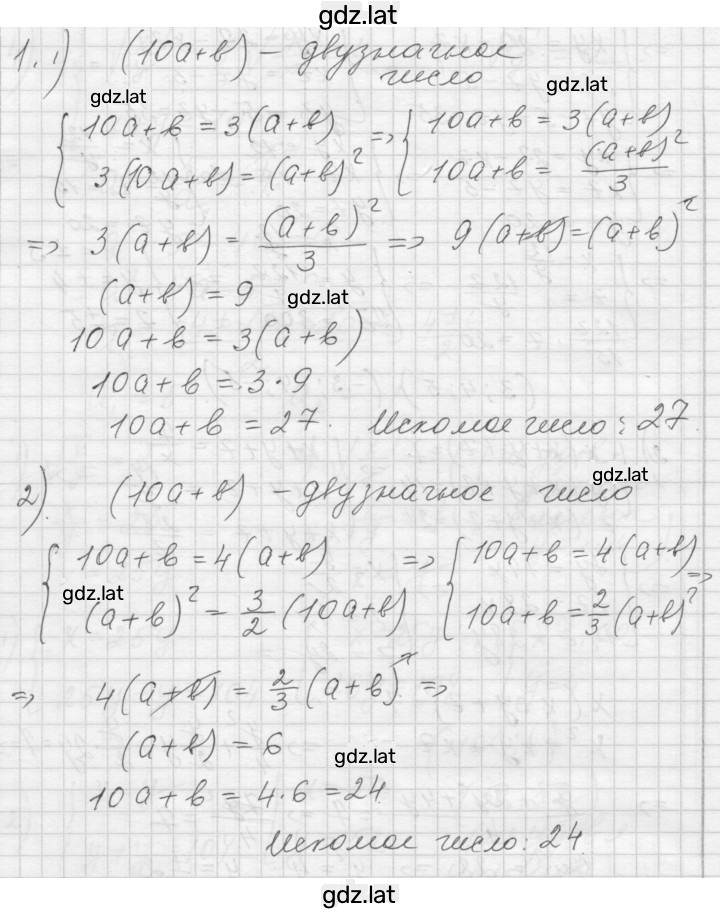 gdz.lat
1. 1) (10a+b) – двузначное
число
gdz.lat
gdz.lat
{ 10a+b = 3(a+b) => { 10a+b = 3(a+b)
3(10a+b) = (a+b)² 10a+b = (a+b)²/3
=> 3(a+b) = (a+b)²/3 => 9(a+b) = (a+b)²
(a+b) = 9
gdz.lat
10a+b = 3(a+b)
10a+b = 3·9
10a+b = 27. Искомое число: 27.
gdz.lat
2). (10a+b) – двузначное число
{ 10a+b = 4(a+b) => { 10a+b = 4(a+b)
gdz.lat
(a+b)² = 3/2 (10a+b) 10a+b = 2/3 (a+b)² =>
=> 4(a+b) = 2/3 (a+b)². =>
(a+b) = 6
gdz.lat
10a+b = 4·6 = 24.
Искомое число: 24.
gdz.lat